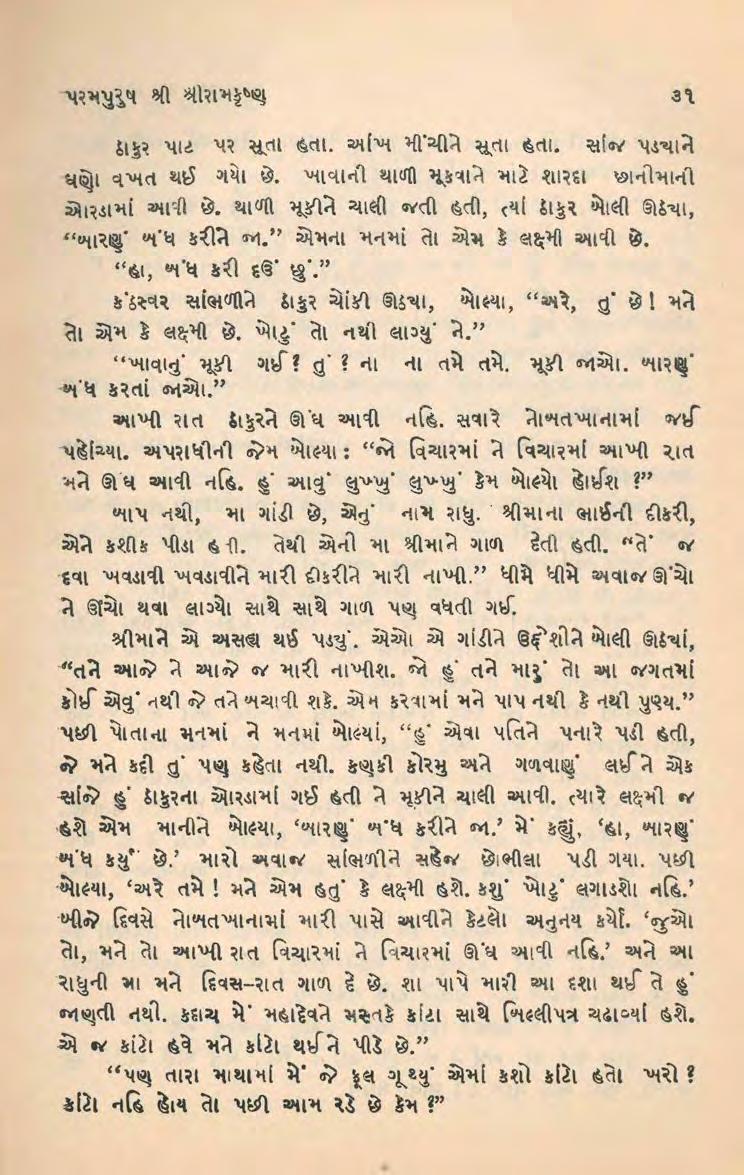 પરમપુરુષ શ્રી શ્રીરામકૃષ્ણ ૩૧
ઠાકુર પાટ પર સૂતા હતા. આંખ મીંચીને સૂતા હતા. સાંજ પડ્યાને
ઘણો વખત થઈ ગયો છે. ખાવાની થાળી મૂકવાને માટે શારદા છાનીમાની
ઓરડામાં આવી છે. થાળી મૂકીને ચાલી જતી હતી, ત્યાં ઠાકુર બોલી ઊઠ્યા,
“બારણું બંધ કરીને જા.” એમના મનમાં તો એમ કે લક્ષ્મી આવી છે.
“હા, બંધ કરી દઉં છું.”
કંઠસ્વર સાંભળીને ઠાકુર ચોંકી ઊઠ્યા, બોલ્યા, “અરે, તું છે! મને
તો એમ કે લક્ષ્મી છે. ખોટું તો નથી લાગ્યું ને.”
“ખાવાનું મૂકી ગઈ? તું? ના ના તમે તમે. મૂકી જાઓ. બારણું
બંધ કરતાં જાઓ.”
આખી રાત ઠાકુરને ઊંઘ આવી નહિ. સવારે નોબતખાનામાં જઈ
પહોંચ્યા. અપરાધીની જેમ બોલ્યા: “જો વિચારમાં ને વિચારમાં આખી રાત
મને ઊંઘ આવી નહિ. હું આવું લુખ્ખું લુખ્ખું કેમ બોલ્યો હોઈશ ?”
બાપ નથી, મા ગાંડી છે, એનું નામ રાધુ. શ્રીમાના ભાઈની દીકરી,
એને કશીક પીડા હતી. તેથી એની મા શ્રીમાને ગાળ દેતી હતી. “તેં જ
દવા ખવડાવી ખવડાવીને મારી દીકરીને મારી નાખી.” ધીમે ધીમે અવાજ ઊંચો
ને ઊંચો થવા લાગ્યો સાથે સાથે ગાળ પણ વધતી ગઈ.
શ્રીમાને એ અસહ્ય થઈ પડ્યું. એઓ એ ગાંડીને ઉદ્દેશીને બોલી ઊઠ્યાં,
“તને આજે ને આજે જ મારી નાખીશ. જો હું તને મારું તો આ જગતમાં
કોઈ એવું નથી જે તને બચાવી શકે. એમ કરવામાં મને પાપ નથી કે નથી પુણ્ય.”
પછી પોતાના મનમાં ને મનમાં બોલ્યાં, “હું એવા પતિને પનારે પડી હતી,
જે મને કદી તું પણ કહેતા નથી. કણકી કોરમુ અને ગળવાણું લઈને એક
સાંજે હું ઠાકુરના ઓરડામાં ગઈ હતી ને મૂકીને ચાલી આવી. ત્યારે લક્ષ્મી જ
હશે એમ માનીને બોલ્યા, ‘બારણું બંધ કરીને જા.’ મેં કહ્યું, ‘હા, બારણું
બંધ કર્યું છે.’ મારો અવાજ સાંભળીને સહેજ છોભીલા પડી ગયા. પછી
બોલ્યા, ‘અરે તમે! મને એમ હતું કે લક્ષ્મી હશે. કશું ખોટું લગાડશો નહિ.’
બીજે દિવસે નોબતખાનામાં મારી પાસે આવીને કેટલો અનુનય કર્યો. ‘જુઓ
તો, મને તો આખી રાત વિચારમાં ને વિચારમાં ઊંઘ આવી નહિ.’ અને આ
રાધુની મા મને દિવસ-રાત ગાળ દે છે. શા પાપે મારી આ દશા થઈ તે હું
જાણતી નથી. કદાચ મેં મહાદેવને મસ્તકે કાંટા સાથે બિલ્લીપત્ર ચઢાવ્યાં હશે.
એ જ કાંટો હવે મને કાંટો થઈને પીડે છે.”
“પણ તારા માથામાં મેં જે ફૂલ ગૂંથ્યું એમાં કશો કાંટો હતો ખરો ?
કાંટો નહિ હોય તો પછી આમ રડે છે કેમ ?”